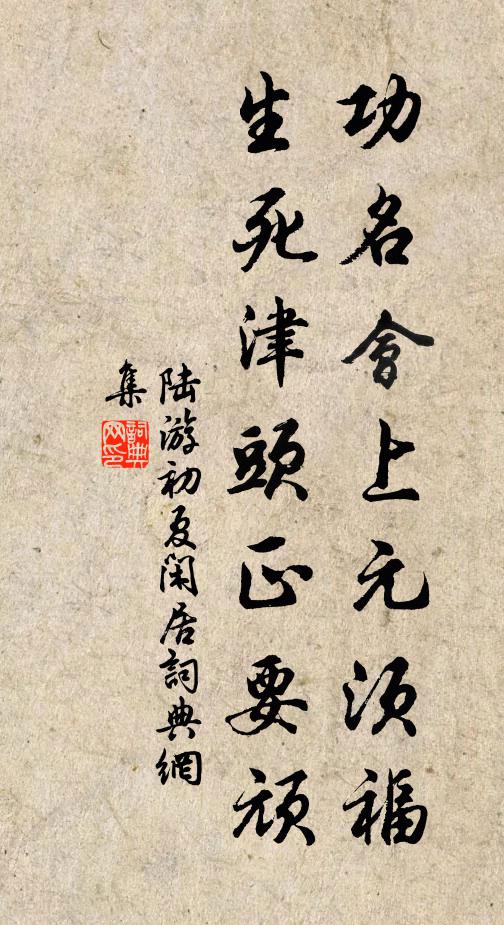 功名會上元須福
生死津頭正要頑
陸游初夏閑居詞典網
集
詞典網印